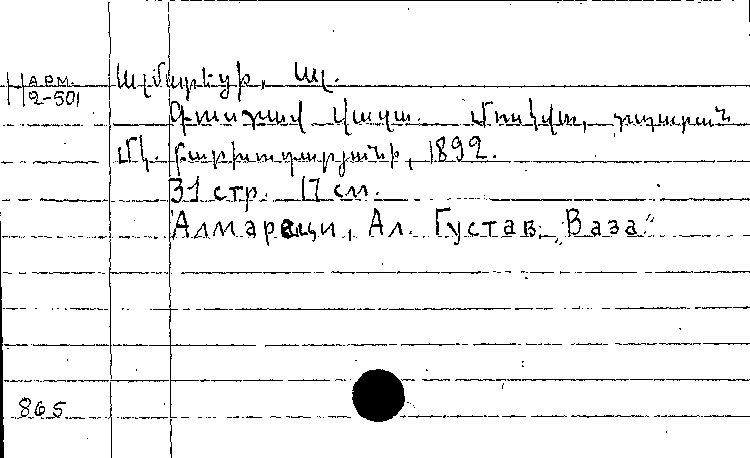 Н арм. 2-501
Ալմարեցի, Ալ.
Գուստավ Վազա. Մոսկվա, տպարան
Մկ. Բարխուդարյանի, 1892.
31 стр. 17 см.
Алмареци, Ал. Густав „Ваза”
865